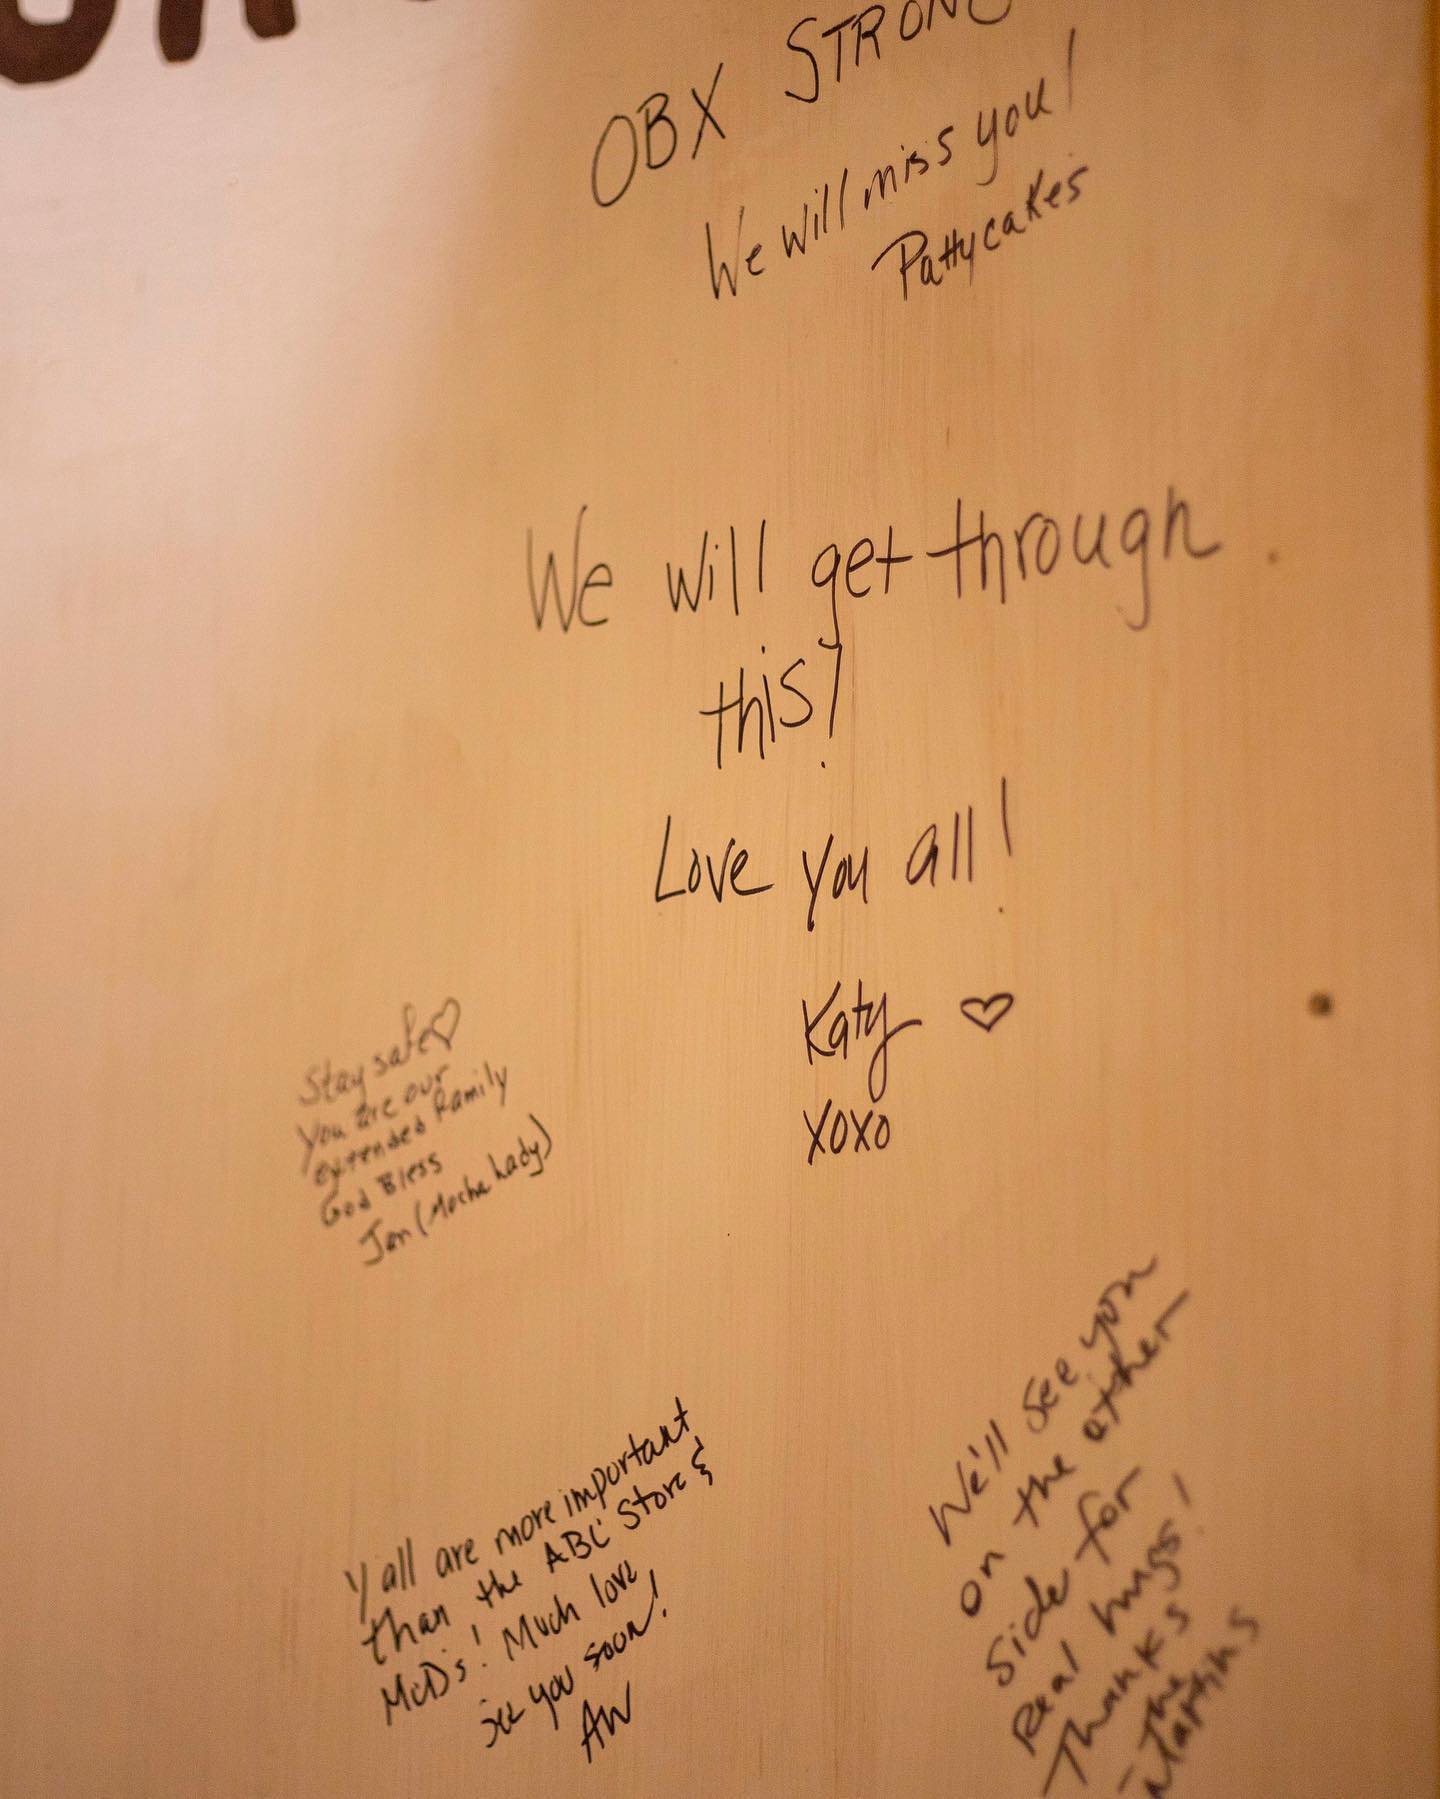 OBX STRONG
We will miss you!
Pattycakes
We will get through
this!
Love you all!
Katy ♡
xoxo
Stay safe ♡
You are our
extended family
God Bless
Jan (Mocha Lady)
Y'all are more important
than the ABC Store &
McD's! Much love
see you soon!
AW
We'll see you
on the other
side for
Real hugs!
Thanks
The
Martins